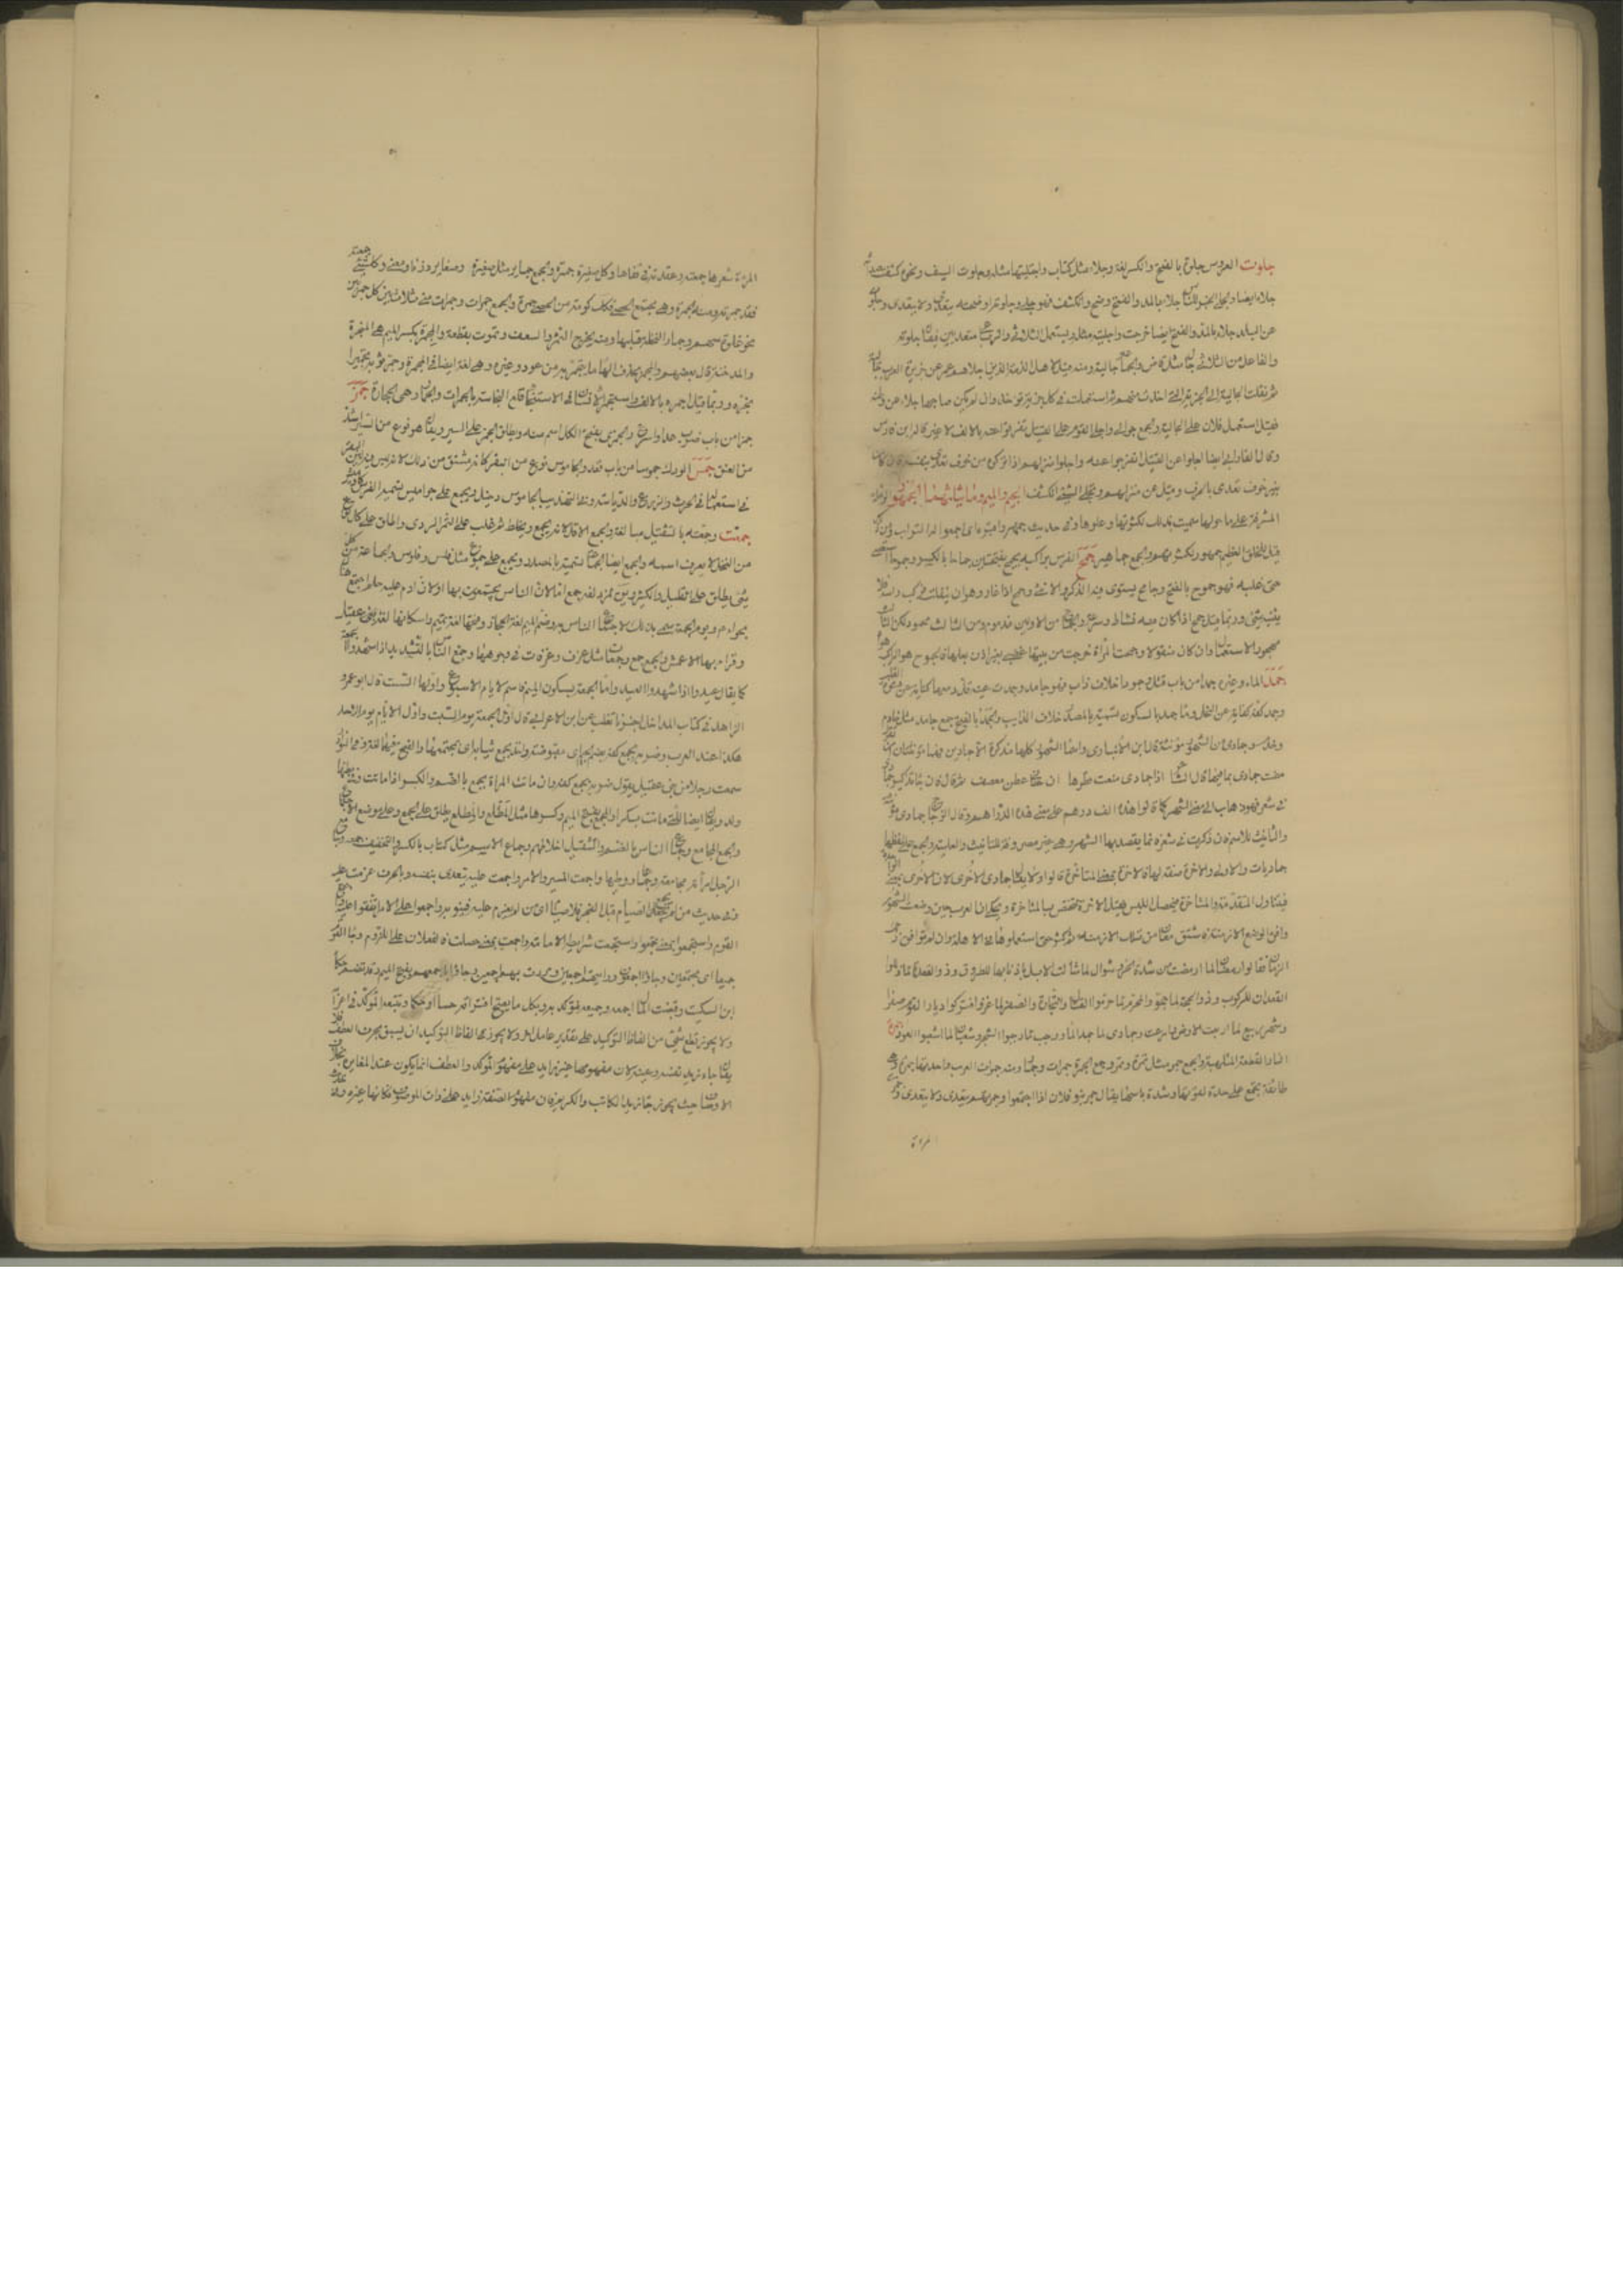 جلوت العروس جلوة بالفتح والكسر لغة وجلاء مثل كتاب واجتليتها مثله وجلوت السيف ونحوه كشفت
جلاء ايضا وجلا الخبر للناس جلاء بالفتح والمد وضح وانكشف فهو جلي وجلوته اوضحته يتعدى ولا يتعدى وجلوت
عن البلد جلاء بالفتح والمد ايضا خرجت واجليت مثله ويستعمل الثلاثي والرباعي متعديين فيقال جلوته
والفاعل من الثلاثي جال مثل قاض والجماعة جالية ومنه قيل لاهل الذمة الذين جلاهم عمر عن جزيرة العرب جالية
ثم نقلت الجالية الى الجزية التي اخذت منهم ثم استعملت في كل جزية تؤخذ وان لم يكن صاحبها جلا عن وطنه
فيقال استعمل فلان على الجالية والجمع الجوالي واجلى القوم عن القتيل تفرقوا عنه بالالف لا غير قاله ابن فارس
وقال الفارابي ايضا اجلوا عن القتيل انفرجوا عنه واجلوا منزلهم اذا تركوه من خوف يتعدى بنفسه فان كان
بغير خوف تعدى بالحرف وقيل عن منزلهم وتجلى الشيء انكشف الجيم والميم وما يثلثهما الجمهور الرملة
المشرفة على ما حولها سميت بذلك لكثرتها وعلوها وفي حديث جمهروا قبره اي اجمعوا له التراب
قيل للخلق العظيم جمهور لكثرتهم والجمع جماهير جمح الفرس براكبه يجمح بفتحتين جماحا بالكسر وجموحا استعصى
حتى غلبه فهو جموح بالفتح وجامح يستوي فيه الذكر والانثى وجمح اذا عار وهو ان ينفلت فيركب راسه فلا
يثنيه شيء وربما قيل جمح اذا كان فيه نشاط وسرعة والجموح من الاولين مذموم ومن الثالث محمود لكن الثالث
مهجور الاستعمال وان كان منقولا وجمحت المرأة خرجت من بيتها غضبى بغير اذن بعلها فالجموح هو الراكب هواه
جمد الماء وغيره جمدا من باب قتل وجمودا خلاف ذاب فهو جامد وجمدت عينه قل دمعها كناية عن قسوة القلب
وجمد كفه كناية عن البخل وماء جمد بالسكون تسمية بالمصدر خلاف الذائب والجمد بالفتح جمع جامد مثل خادم
وخدم وجمادى من الشهور مؤنثة قال ابن الانباري واسماء الشهور كلها مذكرة الا جماديين فهما مؤنثتان
مضت جمادى بما فيها قال الشاعر اذا جمادى منعت قطرها ان جنابي عطن معصف ثم قال فان جاء تذكير جمادى
في شعر فهو ذهاب الى معنى الشهر كما قالوا هذه الف درهم على معنى هذه الدراهم وقال الزجاج جمادى مؤنثة
والتانيث للاسم فان ذكرت في شعر فانما يقصد بها الشهر وهي غير مصروفة للتانيث والعلمية والجمع على لفظها
جماديات والاولى والاخرة صفة لها فالاخرة بمعنى المتاخرة قالوا ولا يقال جمادى الاخرى لان الاخرى بمعنى الواحدة
فيتناول المتقدمة والمتاخرة فيحصل اللبس فقيل الاخرة لتختص بالمتاخرة ويحكى ان العرب حين وضعت الشهور
وافق الوضع الازمنة فاشتق للشهور معان من تلك الازمنة ثم كثر حتى استعملوها في الاهلة وان لم توافق ذلك
الزمان فقالوا رمضان لما ارمضت من شدة الحر وشوال لما شالت الابل باذنابها للطروق وذو القعدة لما ذللوا
القعدان للركوب وذو الحجة لما حجوا والمحرم لما حرموا القتال والتجارة والصفر لما غزوا فتركوا ديار القوم صفرا
وشهر ربيع لما اربعت الارض وامرعت وجمادى لما جمد الماء ورجب لما رجبوا الشجر وشعبان لما اشعبوا العود جمرة
النار القطعة الملتهبة والجمع جمر مثل تمرة وتمر وجمع الجمرة جمرات وجمار ومنه جمرات العرب واحدتها جمرة وهي
طائفة تجتمع على حدة لقوتها وشدة باسها يقال جمر بنو فلان اذا اجتمعوا وجمرتهم يتعدى ولا يتعدى وجمرت
المراة
المراة شعرها جمعته وعقدته في قفاها وكل ضفيرة جميرة والجمع جمائر مثل ضفيرة وضفائر وزنا ومعنى وكل شيء جمعته
فقد جمرته ومنه الجمرة وهي مجتمع الحصى بمنى فكل كومة من الحصى جمرة والجمع جمرات وجمرات منى ثلاث بين كل جمرتين
نحو غلوة سهم وجمار النخلة قلبها ومنه يخرج الثمر والسعف وتموت بقطعه والمجمرة بكسر الميم هي المبخرة
والمدخنة قال بعضهم والمجمر بحذف الهاء ما يتجمر به من عود وغيره وهي لغة ايضا في المجمرة وجمر ثوبه تجميرا
بخره وربما قيل اجمره بالالف واستجمر الانسان في الاستنجاء قلع النجاسة بالجمرات والجمار وهي الحجارة جمز
جمزا من باب ضرب عدا واسرع والجمزى بفتح الكل اسم منه ويطلق الجمز على السير ويقال هو نوع من السير اشد
من العنق جمس الودك جموسا من باب قعد والجاموس نوع من البقر كانه مشتق من ذلك لانه ليس فيه لين البقر
في استعماله في الحرث والزرع والدياسة وفي التهذيب الجاموس دخيل ويجمع على جواميس تسميه الفرس كاوميش
جمعت وجمعته بالتثقيل مبالغة والجمع الدقل لانه يجمع ويخلط ثم غلب على التمر الردي واطلق على كل لون
من النخل لا يعرف اسمه والجمع ايضا الجماعة تسمية بالمصدر ويجمع على جموع مثل فلس وفلوس والجماعة من كل
شيء يطلق على القليل والكثير ويقال لمزدلفة جمع اما لان الناس يجتمعون بها او لان ادم عليه السلام اجتمع هناك
بحواء ويوم الجمعة سمي بذلك لاجتماع الناس به وضم الميم لغة الحجاز وفتحها لغة تميم واسكانها لغة عقيل
وقرا بها الاعمش والجمع جمع وجمعات مثل غرف وغرفات في وجوهها وجمع الناس بالتشديد اذا شهدوا الجمعة
كما يقال عيدوا اذا شهدوا العيد واما الجمعة بسكون الميم فاسم لايام الاسبوع واولها السبت قال ابو عمر
الزاهد في كتاب المداخل اخبرنا ثعلب عن ابن الاعرابي قال اول الجمعة يوم السبت واول الايام يوم الاحد
هكذا عند العرب وضربه بجمع كفه بضم الجيم اي مقبوضة واخذ بجمع ثيابه اي بمجتمعها والفتح فيهما لغة وفي النوادر
سمعت رجلا من بني عقيل يقول ضربه بجمع كفه وماتت المراة بجمع بالضم والكسر اذا ماتت وفي بطنها
ولد ويقال ايضا للتي ماتت بكرا والمجمع بفتح الميم وكسرها مثل المطلع والمطلع يطلق على الجمع وعلى موضع الاجتماع
والجمع المجامع وجماع الناس بالضم والتثقيل اخلاطهم وجماع الاثم مثل كتاب بالكسر والتخفيف جمعه وجامع
الرجل امراته مجامعة وجماعا وطيها واجمعت المسير والامر واجمعت عليه يتعدى بنفسه وبالحرف عزمت عليه
وفي حديث من لم يجمع الصيام قبل الفجر فلا صيام له اي من لم يعزم عليه فينويه واجمعوا على الامر اتفقوا عليه واجتمع
القوم واستجمعوا بمعنى تجمعوا واستجمعت شرايط الامامة واجتمعت بمعنى حصلت فالفعلان على اللزوم وجاء القوم
جميعا اي مجتمعين وجاؤا اجمعون ورايتهم اجمعين ومررت بهم اجمعين وجاؤا باجمعهم بفتح الميم وقد تضم حكاه
ابن السكيت وقبضت المال اجمعه وجميعه فتؤكد به كل ما يصح افتراقه حسا او حكما وتتبعه المؤكد في اعرابه
ولا يجوز قطع شيء من الفاظ التوكيد على تقدير عامل اخر ولا يجوز في الفاظ التوكيد ان ينسق بحرف العطف فلا
يقال جاء زيد نفسه وعينه لان مفهومها غير زائد على مفهوم المؤكد والعطف انما يكون عند المغايرة بخلاف
الاوصاف حيث يجوز جاء زيد الكاتب والكريم فان مفهوم الصفة زايد على ذات الموصوف فكانها غيره وفي